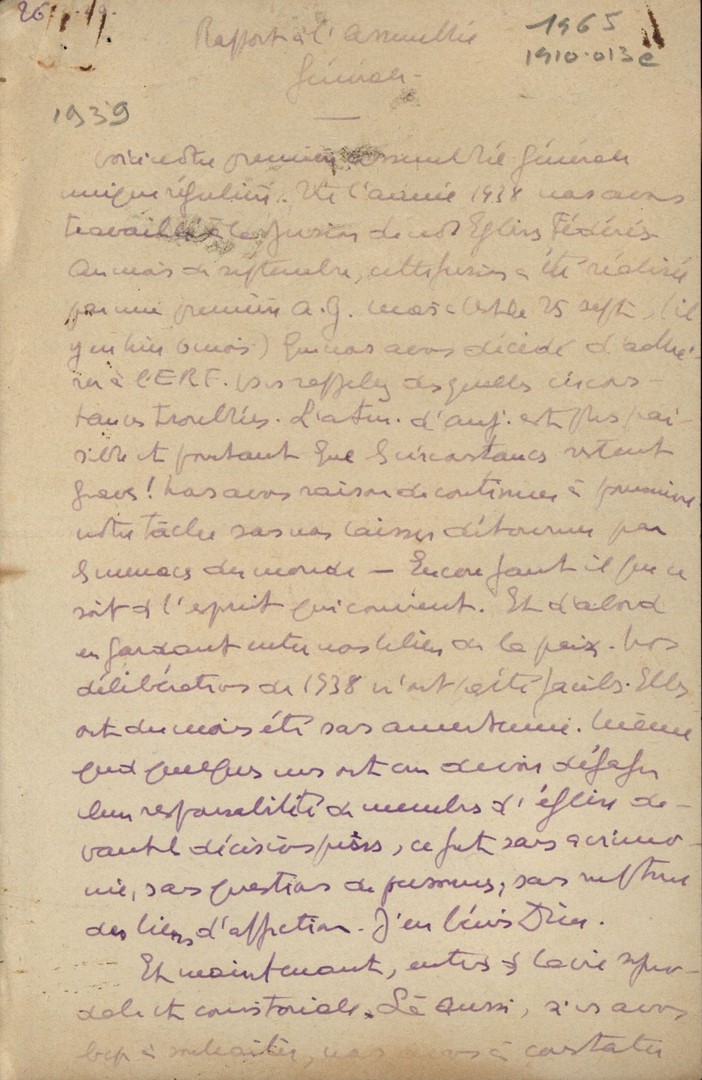 26
Rapport à l'Assemblée
Générale
1965
1910-013e
1939
Voici notre première assemblée générale
unique régulière. De l'année 1938 nous avons
travaillé à la fusion de nos Eglises Fédérés
Au mois de septembre, cette fusion a été réalisée
par une première A.G. mais c'est le 25 sept. (il
y eu hier 6 mois) que nous avons décidé d'adhé-
rer à l'ERF. vs vs rappelez des quelles circons-
tances troublées. L'atm. d'auj. est plus pai-
sible et pourtant que les circonstances restent
graves ! Nous avons raison de continuer à poursuivre
notre tâche sans nous laisser détourner par
les menaces du monde — Encore faut il que ce
soit ds l'esprit qui convient. Et d'abord
en gardant entre nous le lien de la paix. Nos
délibérations de 1938 n'ont pas été faciles. Elles
ont du moins été sans amertume. Même
qud quelques uns ont cru devoir dégager
leur responsabilité de membres d'église de-
vant les décisions prises, ce fut sans acrimo-
nie, sans questions de personnes, sans rupture
des liens d'affection. J'en bénis Dieu.
Et maintenant, entrés ds la vie syno-
dale et consistoriale. Là aussi, si ns avons
bcp à souhaiter, nous avons à constater